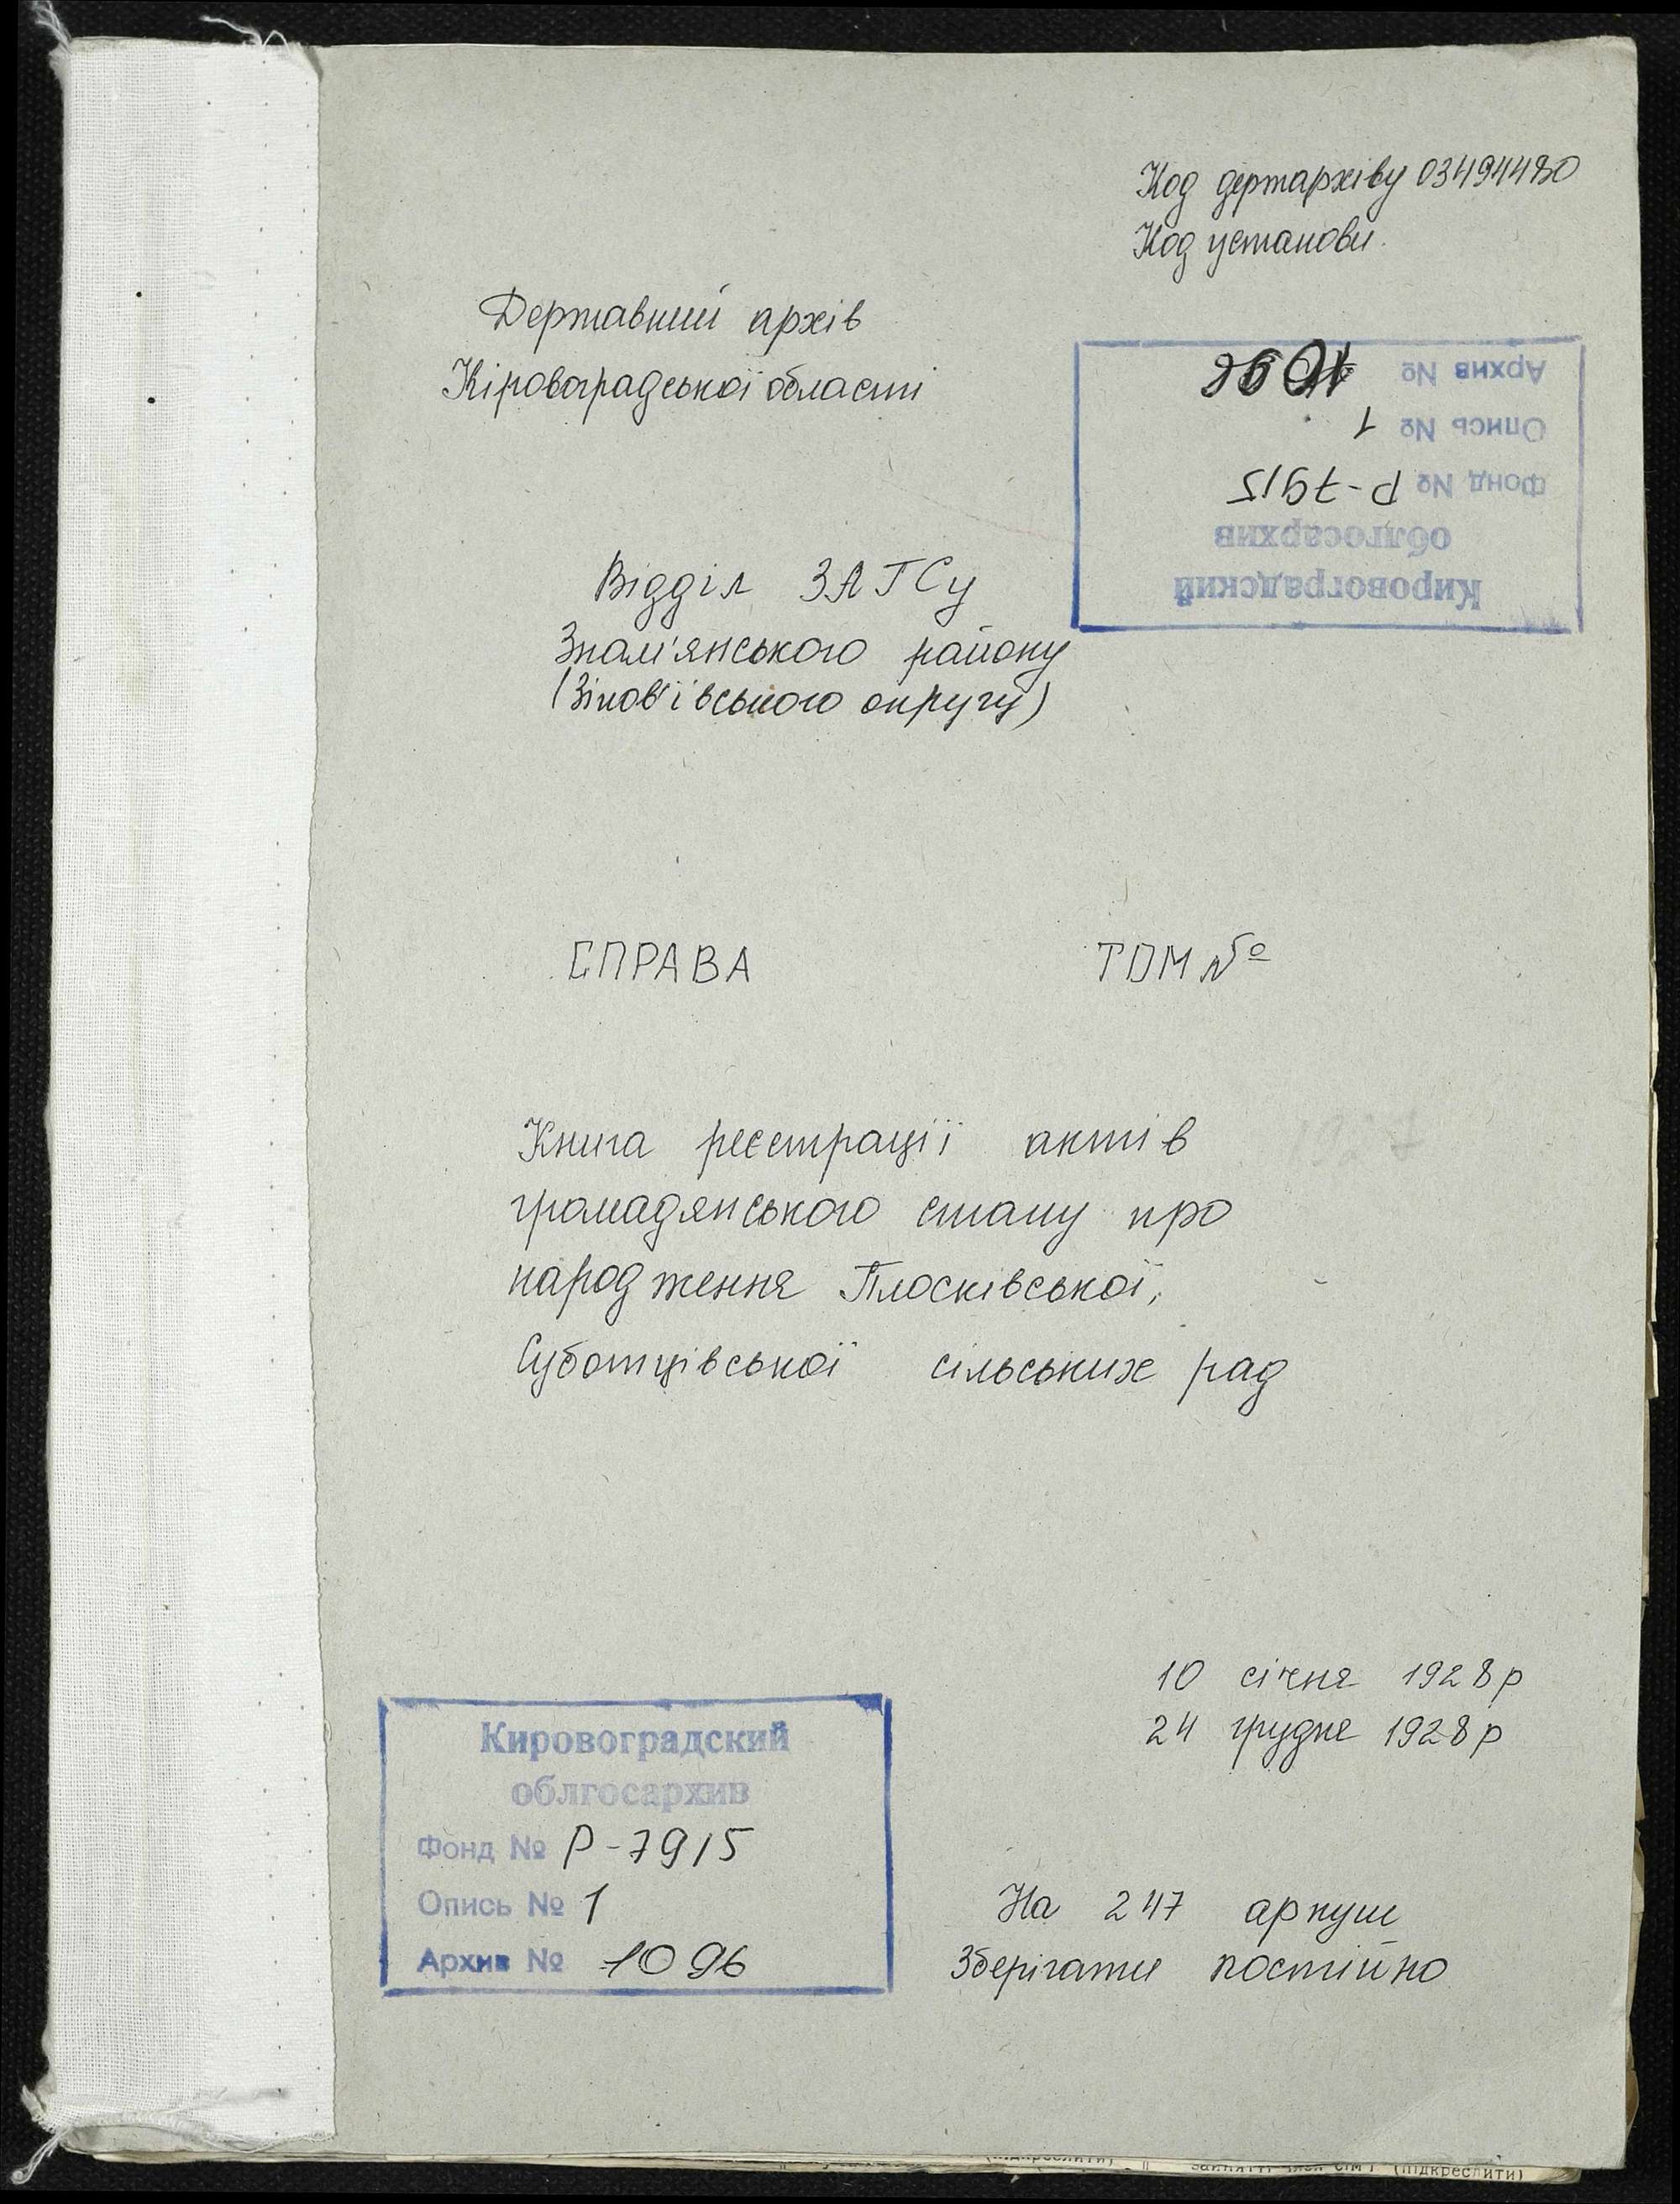 Код держархіву 03494480
Код установи
Державний архів
Кіровоградської області
Кировоградский
облгосархив
Фонд № Р-7915
Опись № 1
Архив № 1096
Відділ ЗАГСу
Знам'янського району
(Зінов'ївського округу)
СПРАВА ТОМ №
Книга реєстрації актів
громадянського стану про
народження Плосківської,
Суботцівської сільських рад
10 січня 1928р
24 грудня 1928р
Кировоградский
облгосархив
Фонд № Р-7915
Опись № 1
Архив № 1096
На 247 аркуш
Зберігати постійно
(підкреслити)